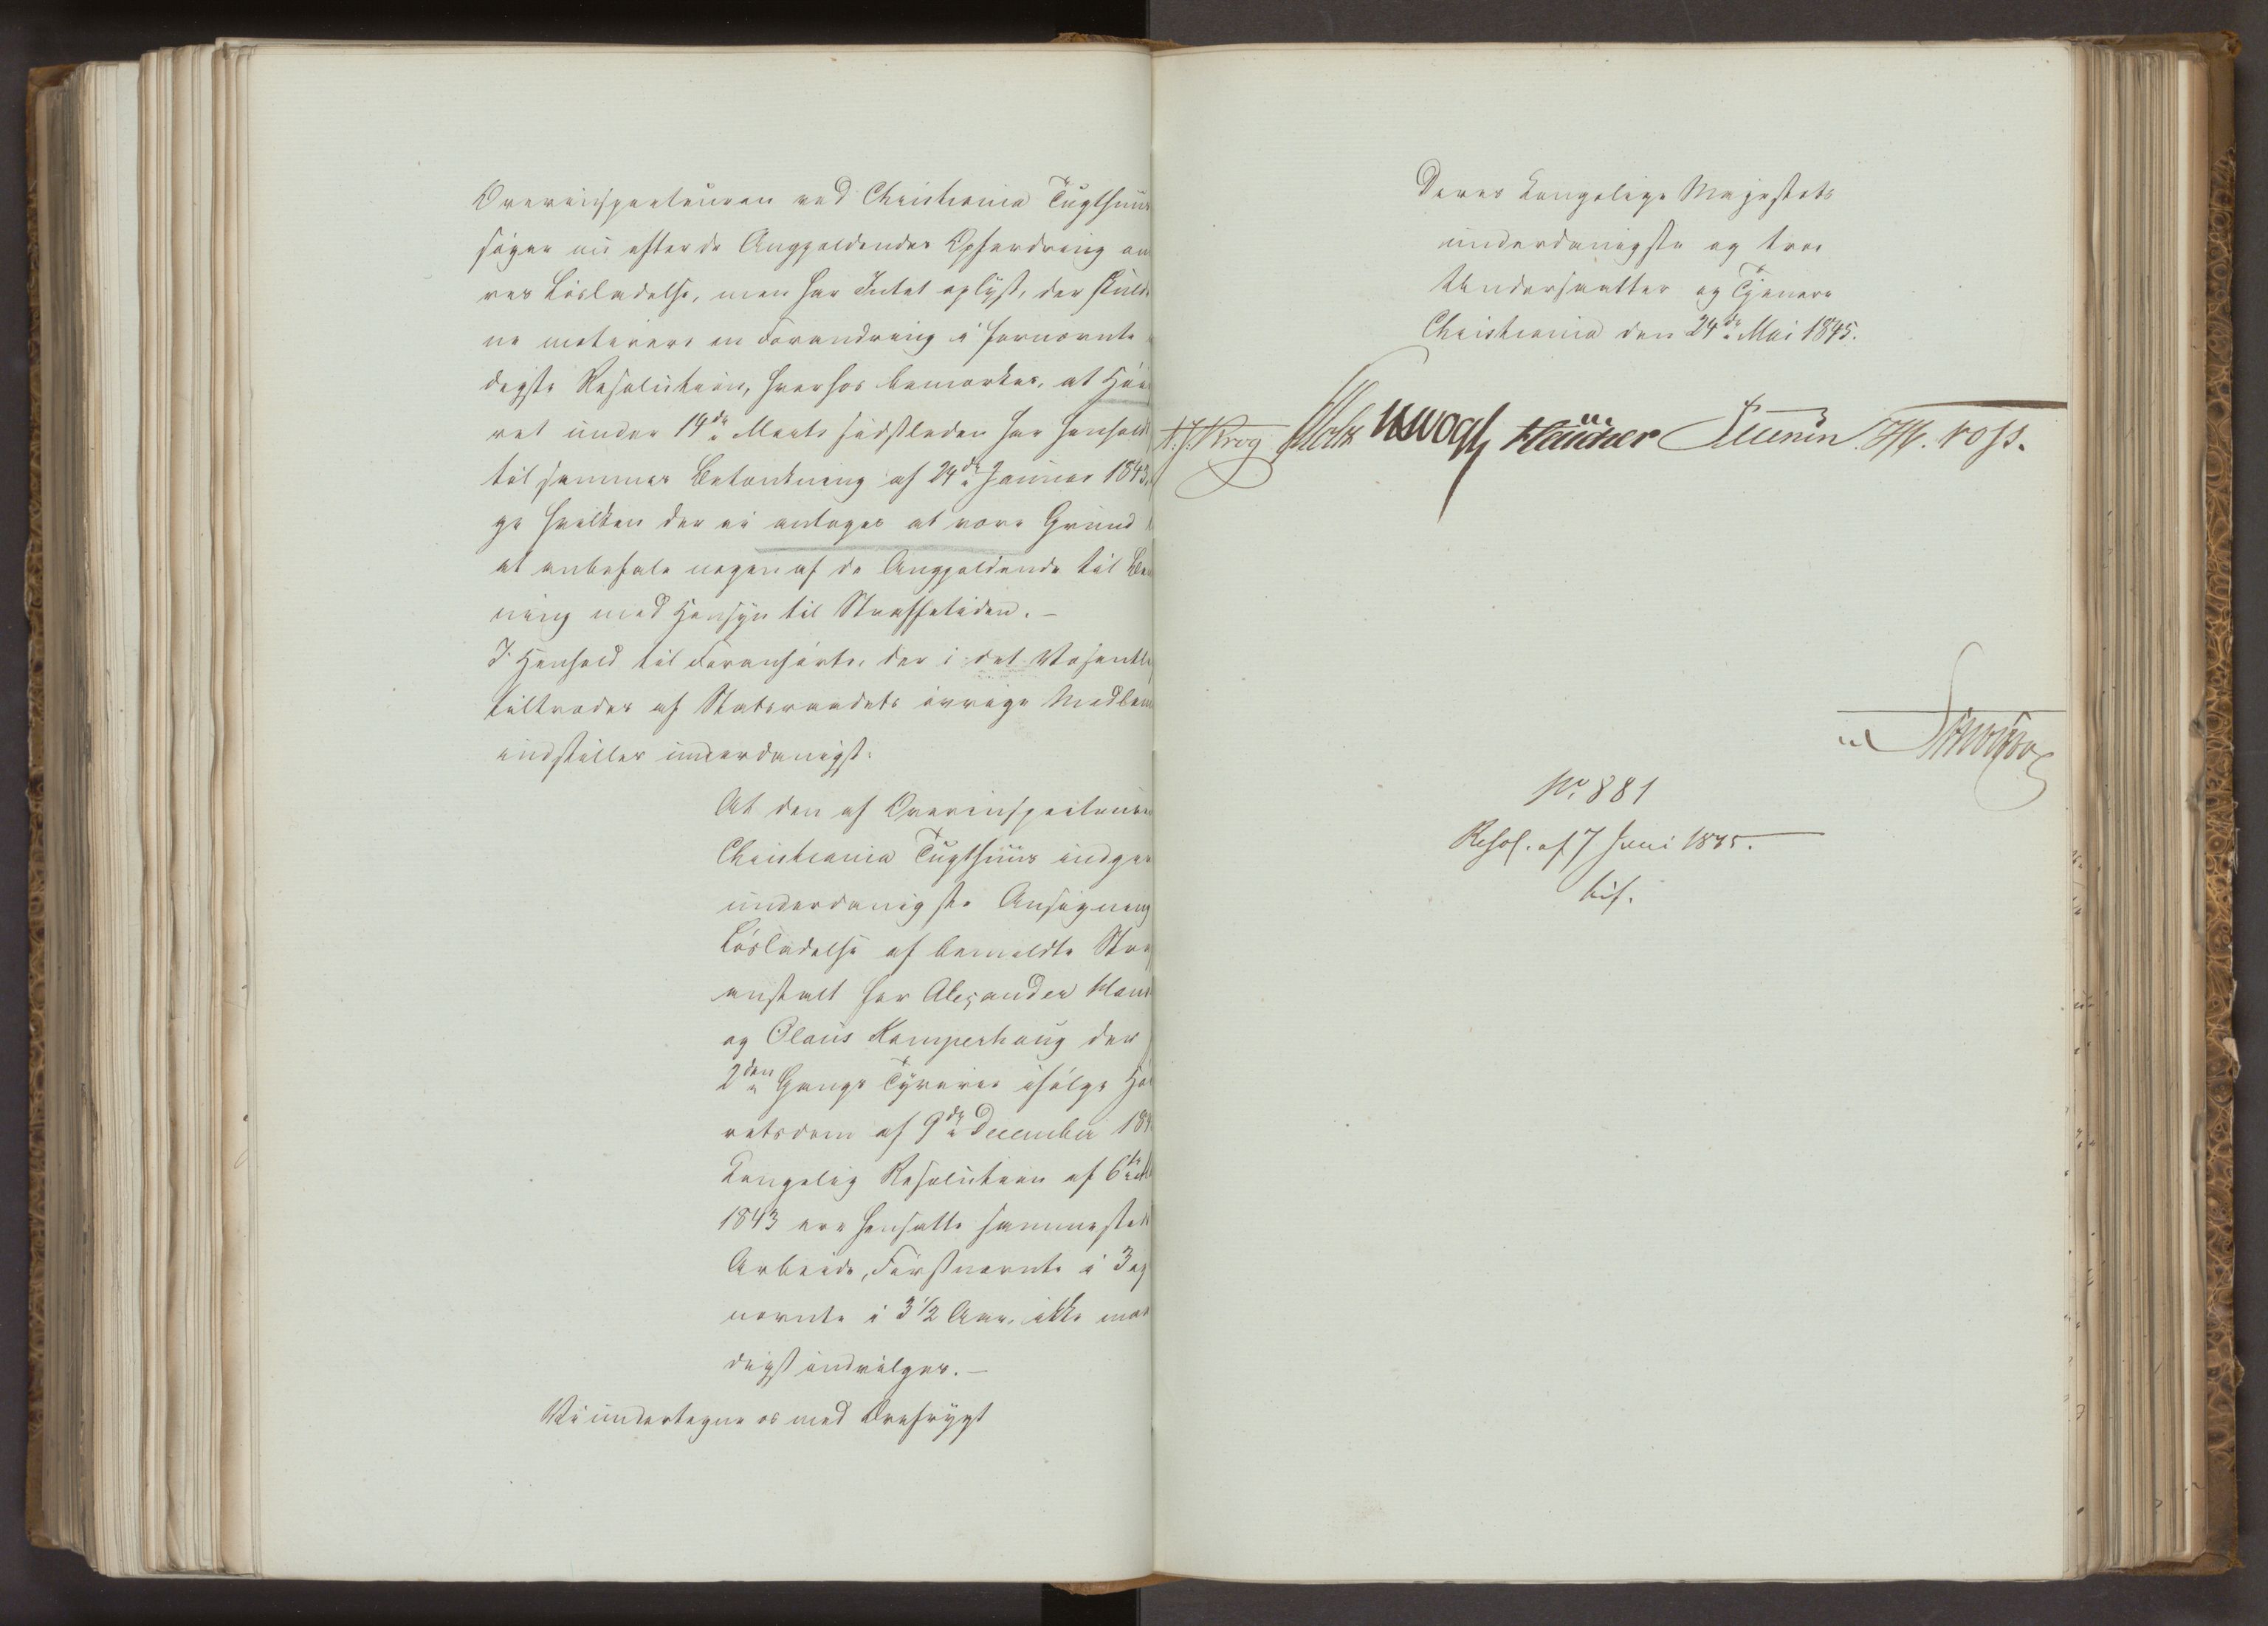 Overinspecteuren ved Christiania Tugthuus
søger nu efter de Angjældendes Opfordring om
res Løsladelse, men har Intet oplyst, der skuld
ne motivere en Forandring i fornævnte
digste Resolution, hvorhos bemærkes, at Høie
ret under 19de Marts sidstleden har henholdt
til sammes Betænkning af 24de Januar 1843,
ge hvilken der ei antages at være Grund
at anbefale nogen af de Angjældende til Be
ning med Hensyn til Straffetiden. –
I Henhold til Foranførte, der i det Væsentli
tiltrædes af Statsraadets øvrige Medlem
indstilles underdanigst:
At den af Overinspecteuren
Christiania Tugthuus indgiv
underdanigste Ansøgning
Løsladelse af bemeldte Straf
anstalt for Alexander
og Olaus Kamperhaug der
2den Gangs Tyverie ifølge Høi
retsdom af 9de December 184
Kongelig Resolution af 6te
1843 ere hensatte sammested
Arbeide, Førstnævnte i 3 og
nævnte i 3½ Aar, ikke maa
digst indvilges. –
Vi undertegne os med Ærefrygt
Deres Kongelige Majestæts
underdanigste og troe
Undersaatter og Tjenere
Christiania den 24de Mai 1845.
H. J. Krog Holst Vogh Hauchler H. Foss.
No 881
Resol. af 7 Juni 1845.
bif.